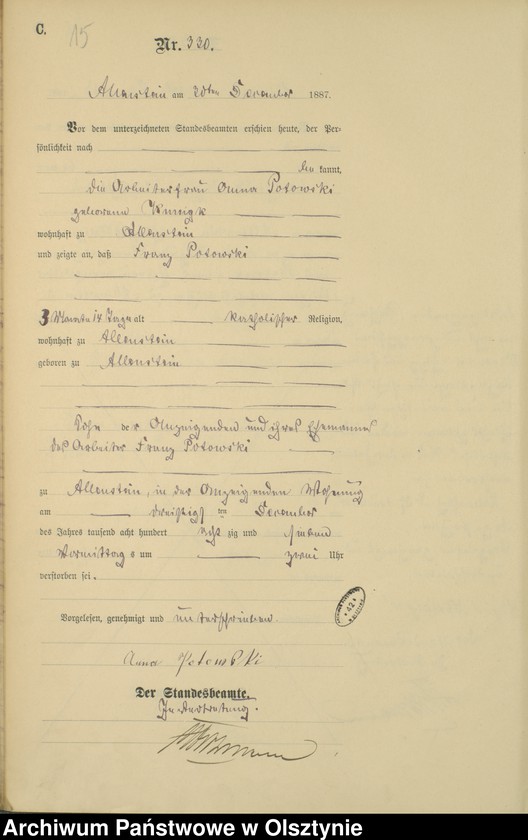 C.
15
Nr. 330.
Allenstein am 30ten December 1887.
Vor dem unterzeichneten Standesbeamten erschien heute, der Per-
sönlichkeit nach
kannt,
die Arbeiterfrau Anna Potowski
geborene
wohnhaft zu Allenstein
und zeigte an, daß Franz Potowski
3 Monate 14 Tage alt katholischer Religion,
wohnhaft zu Allenstein
geboren zu Allenstein
Sohn der Anzeigenden und ihres Ehemannes
des Arbeiter Franz Potowski
zu Allenstein, in der Anzeigenden Wohnung
am dreißigsten December
des Jahres tausend acht hundert acht zig und sieben
Vormittags um zwei Uhr
verstorben sei.
Vorgelesen, genehmigt und unterschrieben
Anna Potowski
Der Standesbeamte.
In Vertretung.
Archiwum Państwowe w Olsztynie